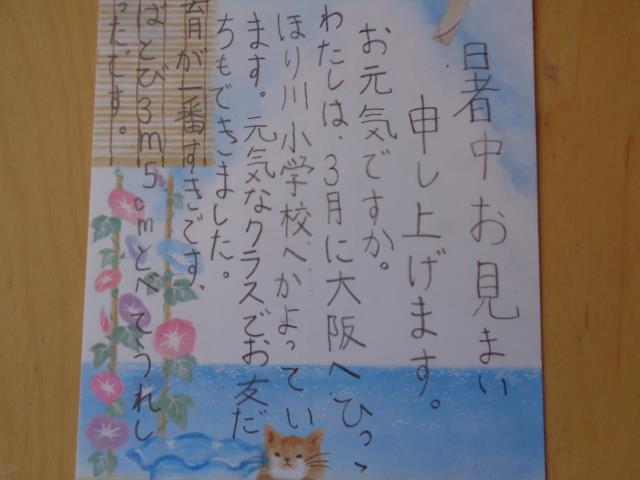 暑中お見まい
申し上げます。
お元気ですか。
わたしは、3月に大阪へひっ
ほり川小学校へかよってい
ます。元気なクラスでお友だ
ちもできました。
育が一番すきです、
ばとび3m5cmとべてうれし
ったです。